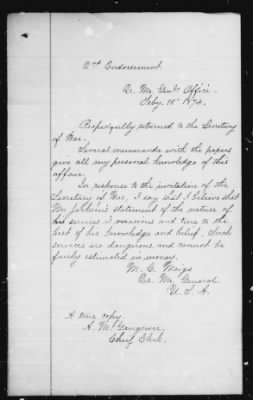 2nd Endorsement.
Qr. Mr. Genls Office.
Feby. 10" 1874.
Respectfully returned to the Secretary
of War.
Several memoranda with the papers
give all my personal knowledge of this
affair.
In response to the invitation of the
Secretary of War, I say that I believe that
Mr Jackson's statement of the nature of
his services is veracious and true to the
best of his knowledge and belief. Such
services are dangerous and cannot be
fairly estimated in money.
M. C. Meigs
Qr. Mr. General
U. S. A.
A true copy.
A. M. Gangewer
Chief Clerk.